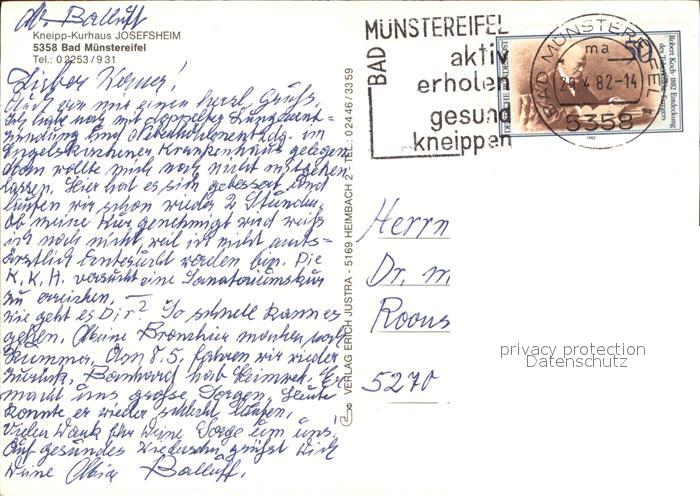 Balluff
Kneipp-Kurhaus JOSEFSHEIM
5358 Bad Münstereifel
Tel.: 02253/931
Lieber Werner!
Auch von mir einen herzl. Gruß.
Ich habe noch mit doppelter Lungenent=
zündung und im
Engelskirchener Krankenhaus gelegen
Man wollte mich noch nicht mitgehen
lassen. Hier hat es sich gebessert und
laufen wir schon wieder 2 Stunden.
Ob meine Kur genehmigt wird weiß
ich noch nicht, weil ich nicht amts=
ärztlich untersucht worden bin. Die
K.K.H. versucht eine Sanatoriumskur
zu erreichen. —
Wie geht es Dir? So schnell kann es
gehen. Meine Bronchien machen noch
Kummer. Am 8.5. fahren wir wieder
zurück. hat Heimweh. Er
macht uns große Sorgen. Heute
konnte er wieder schlecht laufen.
Vielen Dank für Deine Sorge um uns.
Auf gesundes Wiedersehn grüßt Dich
Deine Balluff.
VERLAG ERICH JUSTRA - 5169 HEIMBACH 2 - TEL.: 02446/3359
BAD MÜNSTEREIFEL
aktiv
erholen
gesund
kneippen
BAD MÜNSTEREIFEL
ma
4.82-14
5358
50
Robert Koch 1882 Entdeckung
des Tuberkulose-Erregers
DEUTSCHE BUNDESPOST
1982
Herrn
Dr. m
5270
privacy protection
Datenschutz